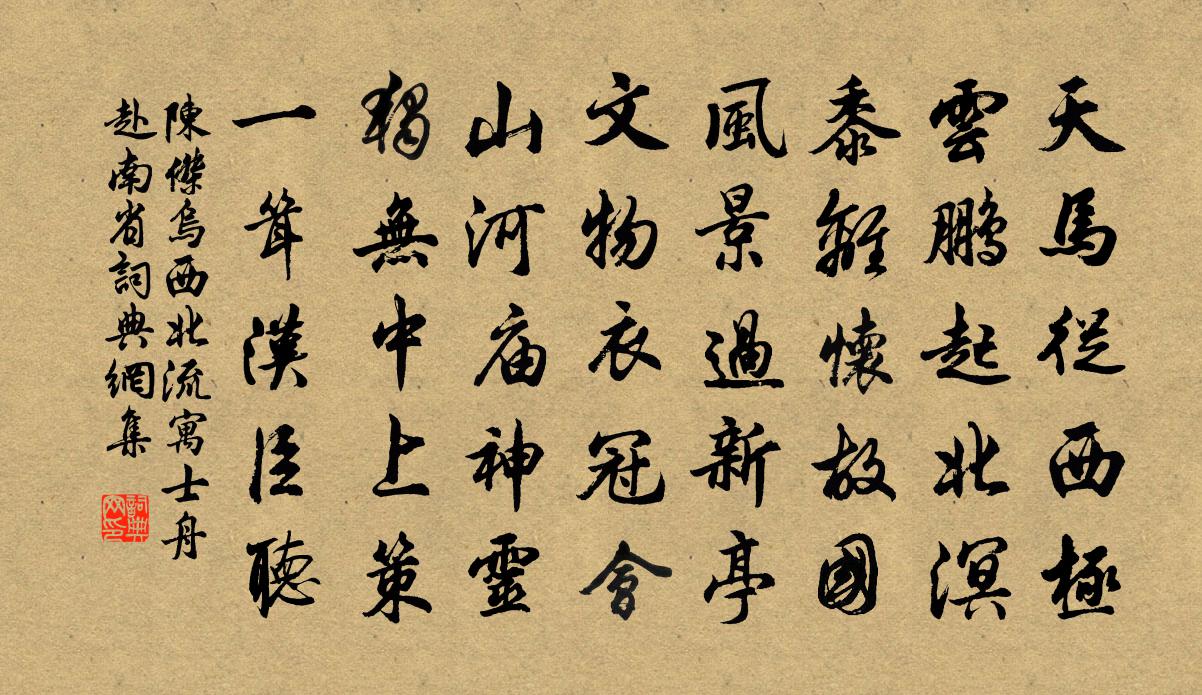 天馬從西極
雲鵬起北溟
黍離懷故國
風景過新亭
文物衣冠會
山河庙神靈
獨無中上策
一聳漢臣聽
陳傑烏西北流寓士舟
赴南省詞典網集
詞典網印